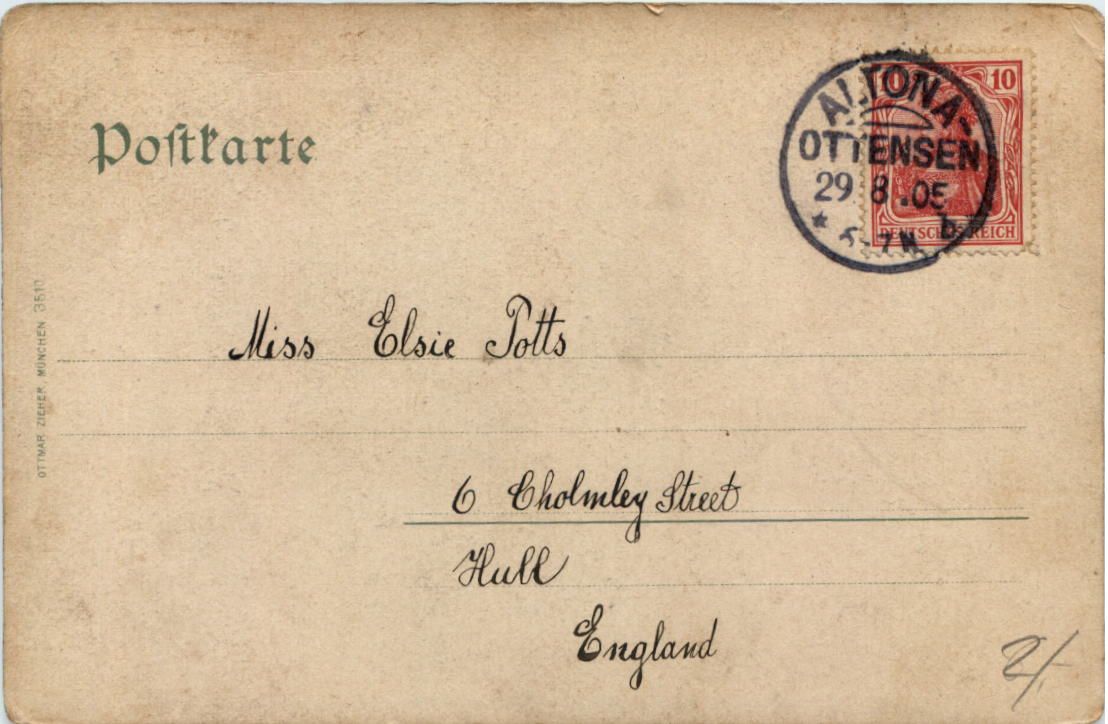 Postkarte
10 10
ALTONA-
OTTENSEN
29.8.05
* 6-7N b
DEUTSCHES REICH
OTTMAR ZIEHER, MÜNCHEN
Miss Elsie Potts
6 Cholmley Street
Hull
England
2/-